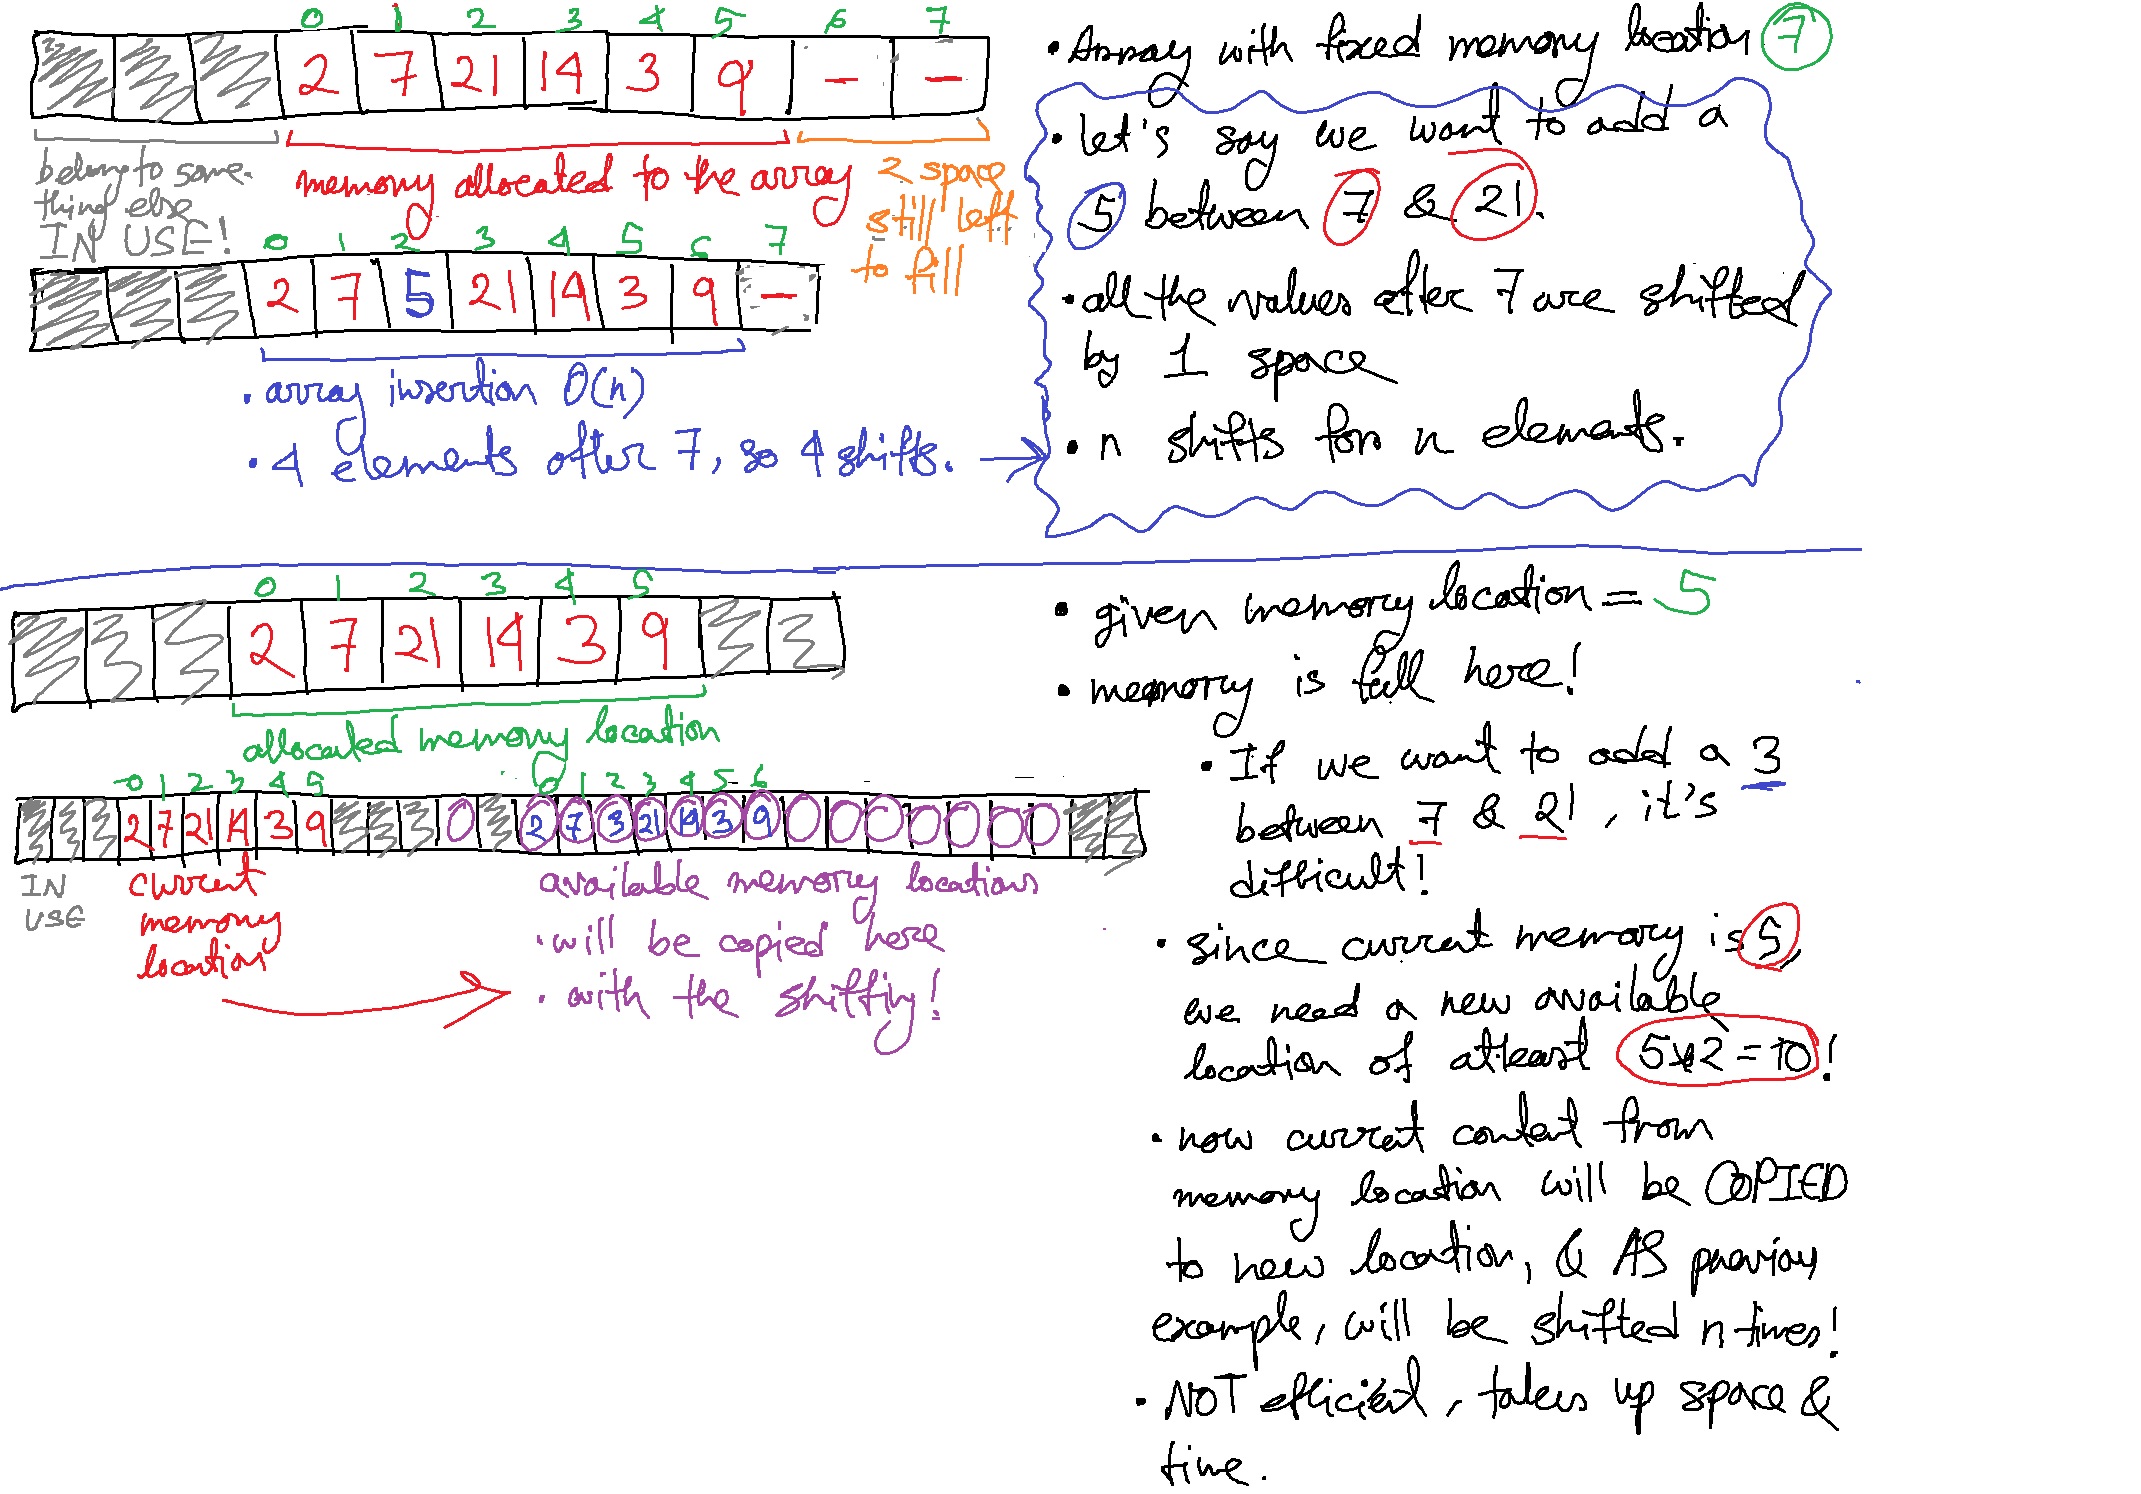 0 1 2 3 4 5 6 7
2 7 21 14 3 9 - -
belong to some-
thing else
IN USE!
memory allocated to the array
2 space
still left
to fill
0 1 2 3 4 5 6 7
2 7 5 21 14 3 9 -
• array insertion O(n)
• 4 elements after 7, so 4 shifts. →
• Array with fixed memory location 7
• let's say we want to add a
5 between 7 & 21.
• all the values after 7 are shifted
by 1 space
• n shifts for n elements.
0 1 2 3 4 5
2 7 21 14 3 9
allocated memory location
0 1 2 3 4 5 0 1 2 3 4 5 6
2 7 21 14 3 9 0 2 7 3 21 14 3 9 0 0 0 0 0 0 0
IN
USE
current
memory
location
available memory locations
• will be copied here
• with the shifting!
• given memory location = 5
• memory is full here!
• If we want to add a 3
between 7 & 21, it's
difficult!
• since current memory is 5,
we need a new available
location of atleast 5x2=10!
• now current content from
memory location will be COPIED
to new location, & AS previous
example, will be shifted n times!
• NOT efficient, takes up space &
time.